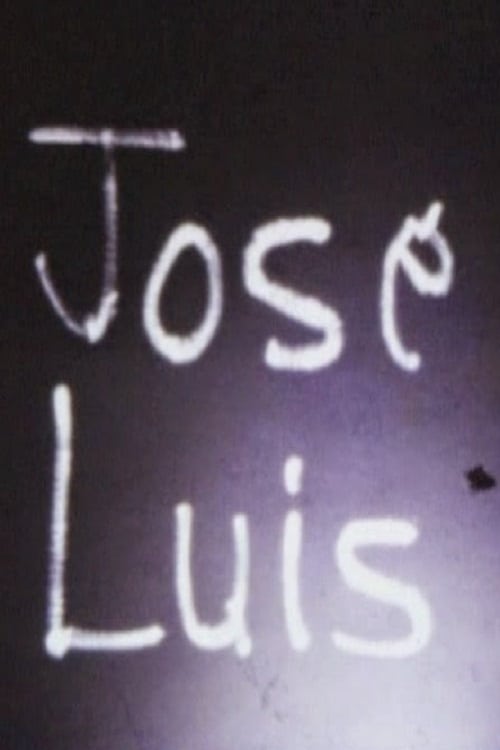 Jose
Luis